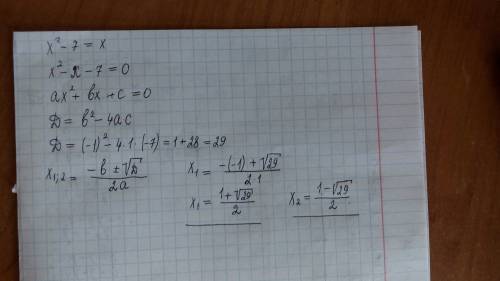 x² - 7 = x
x² - x - 7 = 0
ax² + bx + c = 0
D = b² - 4ac
D = (-1)² - 4·1·(-7) = 1 + 28 = 29
x₁,₂ = (-b ± √D) / 2a    x₁ = (-(-1) + √29) / 2·1
x₁ = (1 + √29) / 2    x₂ = (1 - √29) / 2